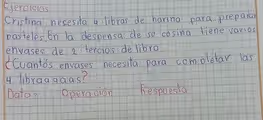 Ejercicios
Cristina necesita 4 libras de harina para preparar
pasteles. En la despensa de su cosina tiene varios
envases de 2 tercios de libra
¿Cuantós envases necesita para completar las
4 libraaaaas?
Datos Operación Respuesta